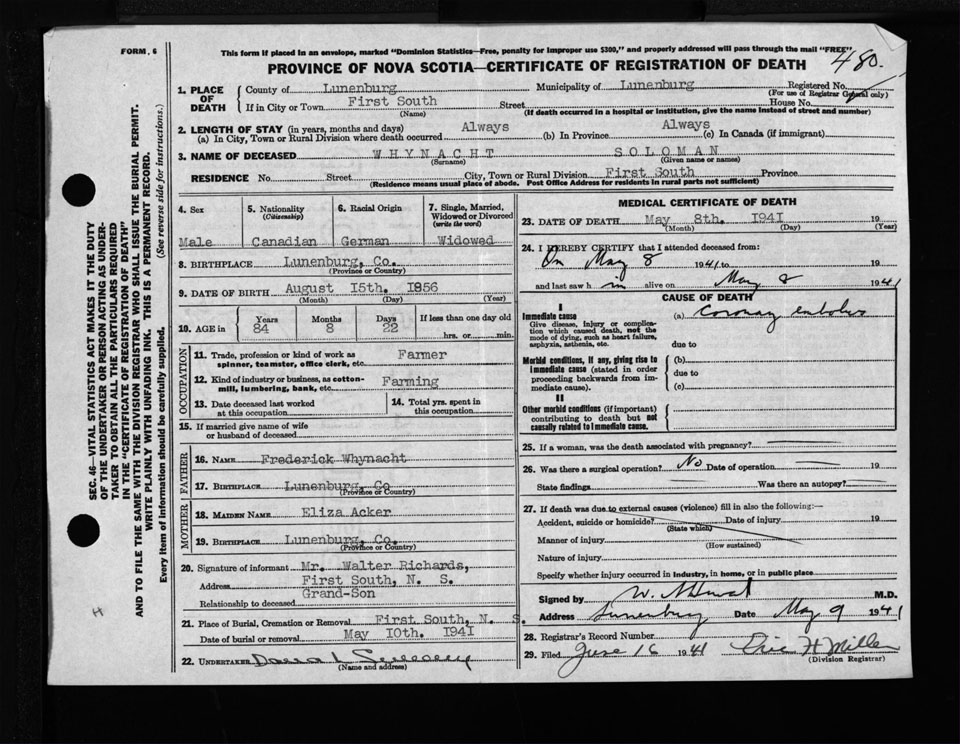 FORM. 6
This form if placed in an envelope, marked "Dominion Statistics—Free, penalty for improper use $300," and properly addressed will pass through the mail "FREE"
480.
PROVINCE OF NOVA SCOTIA—CERTIFICATE OF REGISTRATION OF DEATH
1. PLACE OF DEATH
County of Lunenburg Municipality of Lunenburg Registered No.
(For use of Registrar General only)
If in City or Town First South Street House No.
(Name) (If death occurred in a hospital or institution, give the name instead of street and number)
2. LENGTH OF STAY (in years, months and days)
(a) In City, Town or Rural Division where death occurred Always (b) In Province Always (c) In Canada (if immigrant)
3. NAME OF DECEASED WHYNACHT SOLOMAN
(Surname) (Given name or names)
RESIDENCE No. Street City, Town or Rural Division First South Province
(Residence means usual place of abode. Post Office Address for residents in rural parts not sufficient)
4. Sex
Male
5. Nationality (Citizenship)
Canadian
6. Racial Origin
German
7. Single, Married, Widowed or Divorced (write the word)
Widowed
8. BIRTHPLACE Lunenburg, Co.
(Province or Country)
9. DATE OF BIRTH August 15th. 1856
(Month) (Day) (Year)
10. AGE in
Years Months Days If less than one day old
84 8 22 hrs. or min.
OCCUPATION
11. Trade, profession or kind of work as spinner, teamster, office clerk, etc. Farmer
12. Kind of industry or business, as cotton-mill, lumbering, bank, etc. Farming
13. Date deceased last worked at this occupation
14. Total yrs. spent in this occupation
15. If married give name of wife or husband of deceased
FATHER
16. NAME Frederick Whynacht
17. BIRTHPLACE Lunenburg, Co
(Province or Country)
MOTHER
18. MAIDEN NAME Eliza Acker
19. BIRTHPLACE Lunenburg, Co.
(Province or Country)
20. Signature of informant Mr. Walter Richards,
Address First South, N. S.
Relationship to deceased Grand-Son
21. Place of Burial, Cremation or Removal First South, N. S.
Date of burial or removal May 10th. 1941
22. UNDERTAKER
(Name and address)
MEDICAL CERTIFICATE OF DEATH
23. DATE OF DEATH May 8th. 1941 19
(Month) (Day) (Year)
24. I HEREBY CERTIFY that I attended deceased from:
On May 8 1941 to 19
and last saw h im alive on May 8 1941
CAUSE OF DEATH
I
Immediate cause (a)
Give disease, injury or complication which caused death, not the mode of dying, such as heart failure, asphyxia, asthenia, etc.
due to
Morbid conditions, if any, giving rise to immediate cause (stated in order proceeding backwards from immediate cause).
(b)
due to
(c)
II
Other morbid conditions (if important) contributing to death but not causally related to immediate cause.
25. If a woman, was the death associated with pregnancy?
26. Was there a surgical operation? No Date of operation 19
State findings Was there an autopsy?
27. If death was due to external causes (violence) fill in also the following:—
Accident, suicide or homicide? Date of injury 19
(State which)
Manner of injury
(How sustained)
Nature of injury
Specify whether injury occurred in industry, in home, or in public place
Signed by M.D.
Address Lunenburg Date May 9 1941
28. Registrar's Record Number
29. Filed June 16 1941 Eric H Miller
(Division Registrar)
SEC. 46—VITAL STATISTICS ACT MAKES IT THE DUTY
OF THE UNDERTAKER OR PERSON ACTING AS UNDER-
TAKER TO OBTAIN ALL THE PARTICULARS REQUIRED
IN THE "CERTIFICATE OF REGISTRATION OF DEATH"
AND TO FILE THE SAME WITH THE DIVISION REGISTRAR WHO SHALL ISSUE THE BURIAL PERMIT.
WRITE PLAINLY WITH UNFADING INK. THIS IS A PERMANENT RECORD.
Every item of information should be carefully supplied. (See reverse side for instructions.)